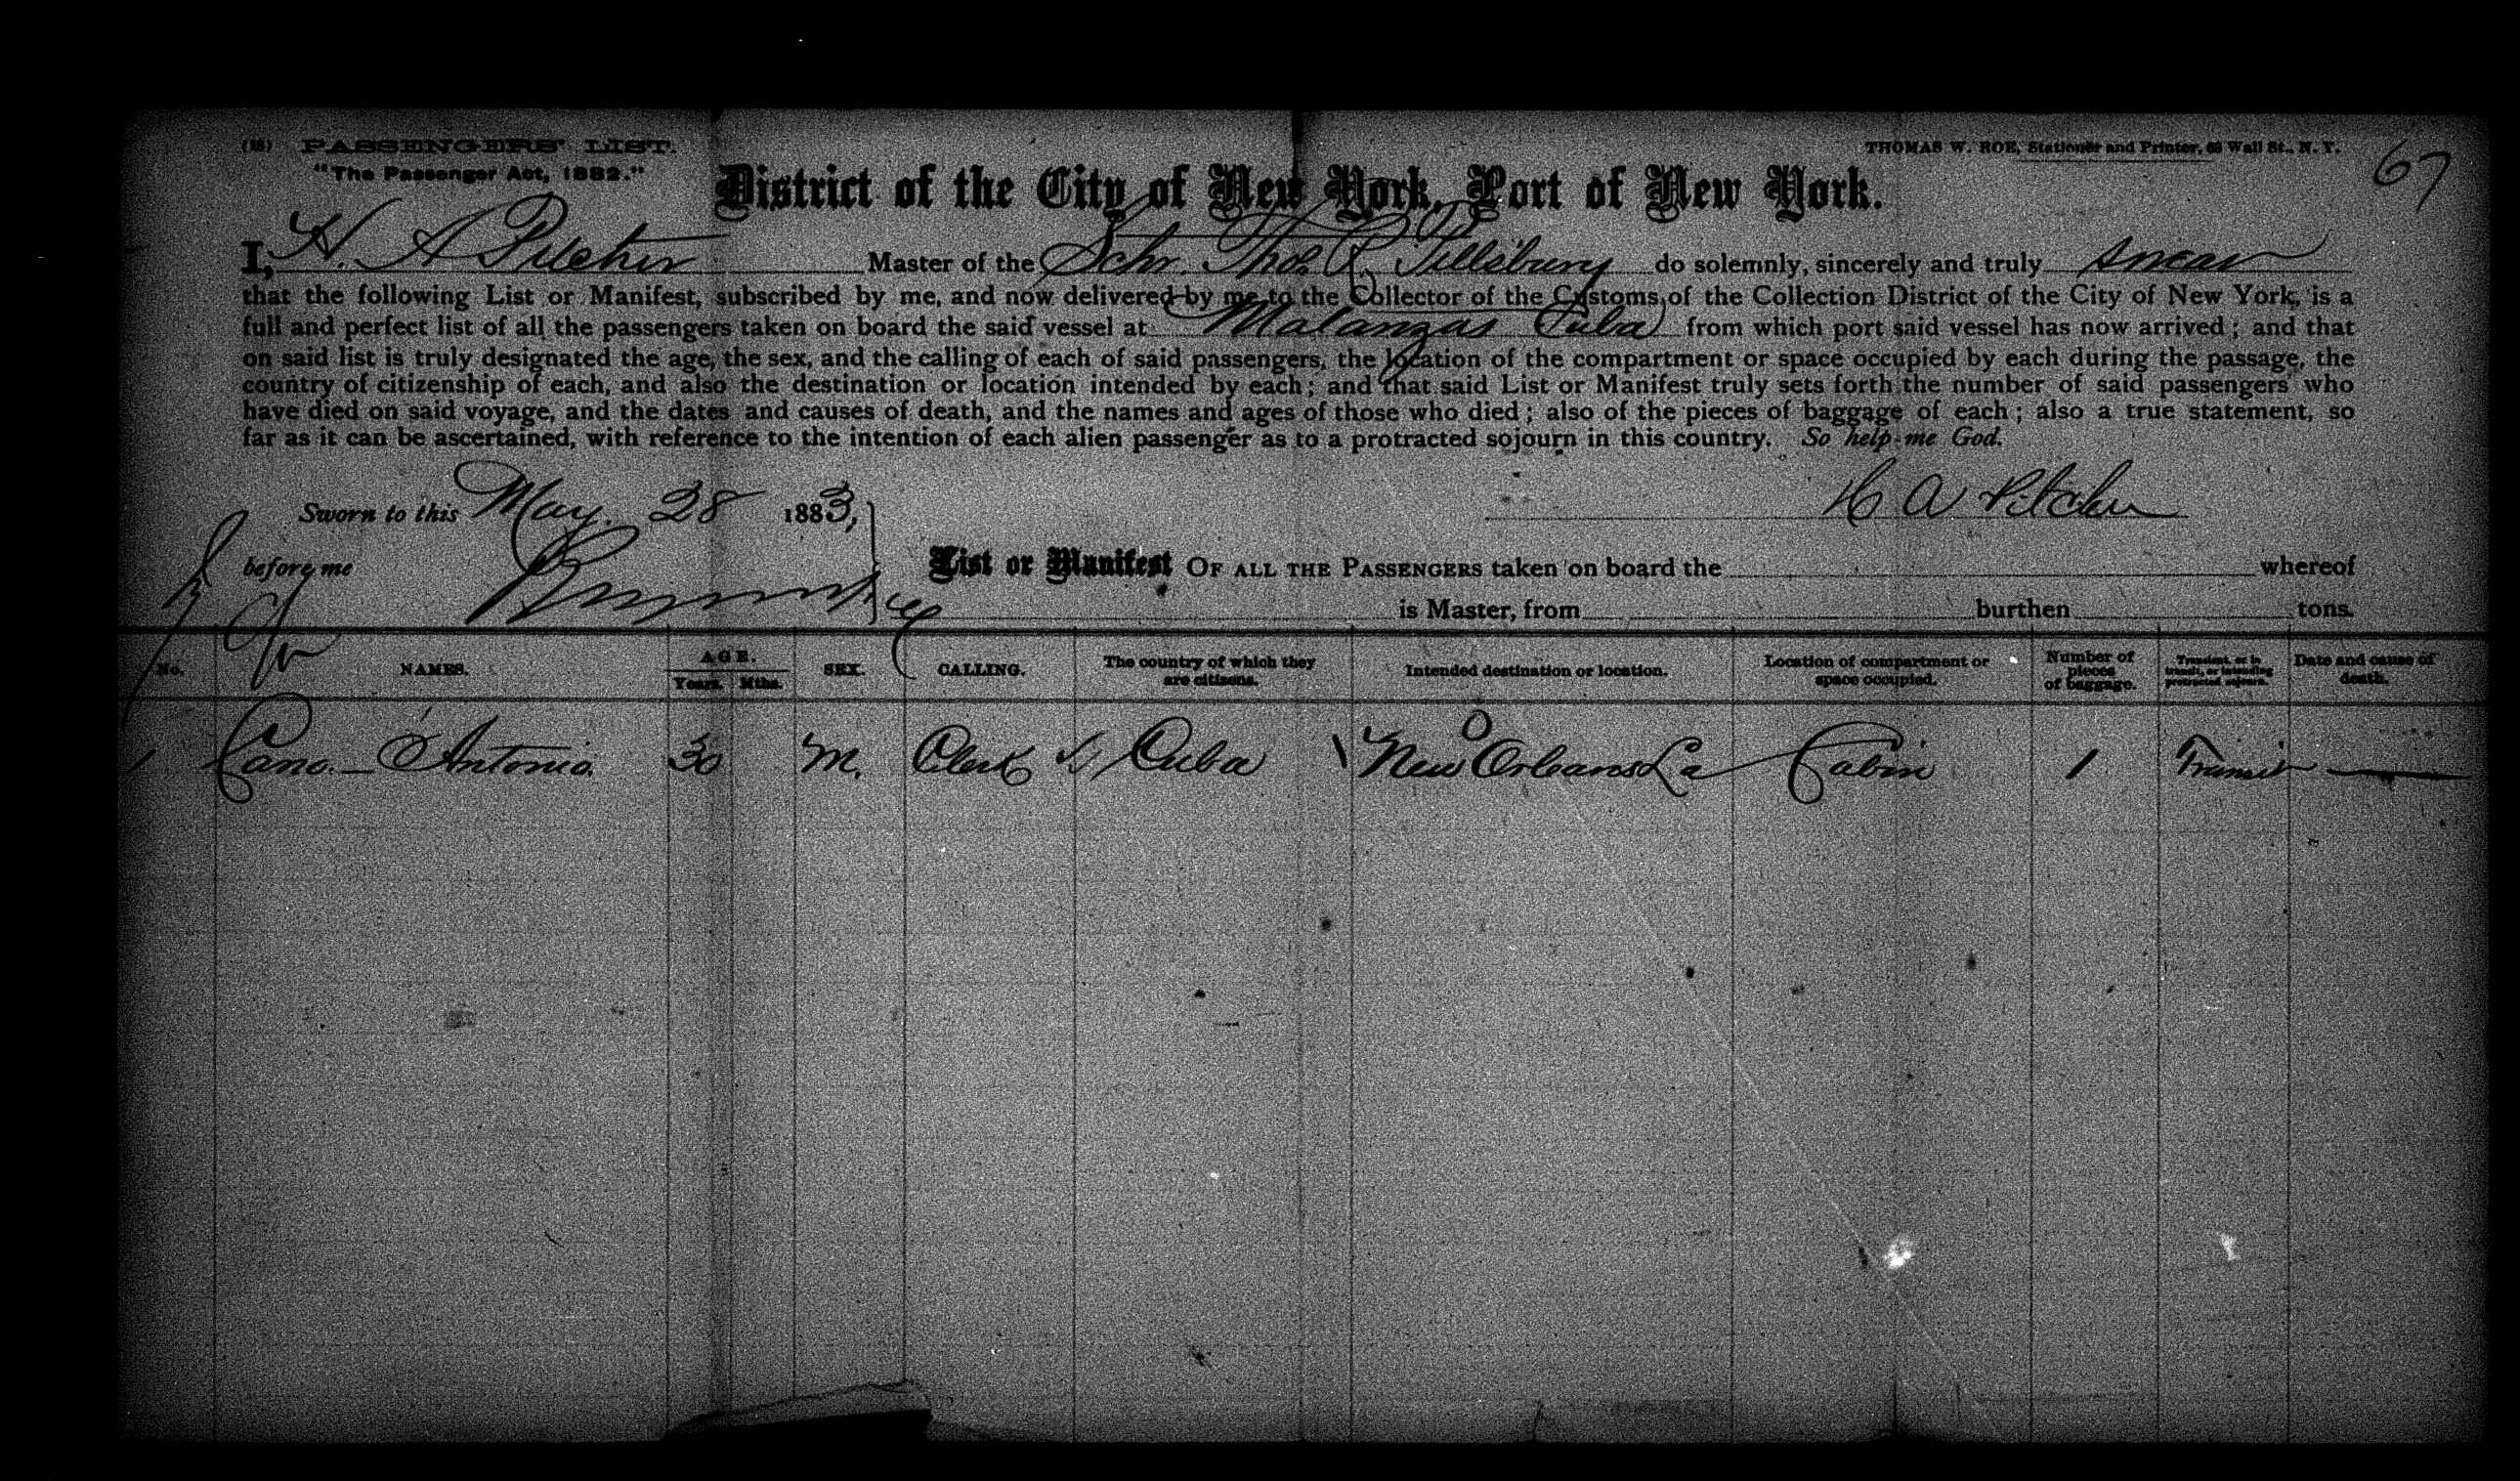 (18) PASSENGERS' LIST.
"The Passenger Act, 1882."
THOMAS W. ROE, Stationer and Printer, 63 Wall St., N. Y.
67
District of the City of New York, Port of New York.
I, H. A Pitcher Master of the Schr. Thos. R. Pillsbury do solemnly, sincerely and truly swear
that the following List or Manifest, subscribed by me, and now delivered by me to the Collector of the Customs of the Collection District of the City of New York, is a
full and perfect list of all the passengers taken on board the said vessel at Matanzas Cuba from which port said vessel has now arrived; and that
on said list is truly designated the age, the sex, and the calling of each of said passengers, the location of the compartment or space occupied by each during the passage, the
country of citizenship of each, and also the destination or location intended by each; and that said List or Manifest truly sets forth the number of said passengers who
have died on said voyage, and the dates and causes of death, and the names and ages of those who died; also of the pieces of baggage of each; also a true statement, so
far as it can be ascertained, with reference to the intention of each alien passenger as to a protracted sojourn in this country. So help me God.
Sworn to this May. 28 1883,
H A Pitcher
before me
List or Manifest OF ALL THE PASSENGERS taken on board the whereof
is Master, from burthen tons.
No. NAMES. AGE. Years. Mths. SEX. CALLING. The country of which they are citizens. Intended destination or location. Location of compartment or space occupied. Number of pieces of baggage. Transient, or in transit, or intending protracted sojourn. Date and cause of death.
1 Cano. — Antonio. 30 M. Clerk Cuba New Orleans La Cabin 1 Transit —